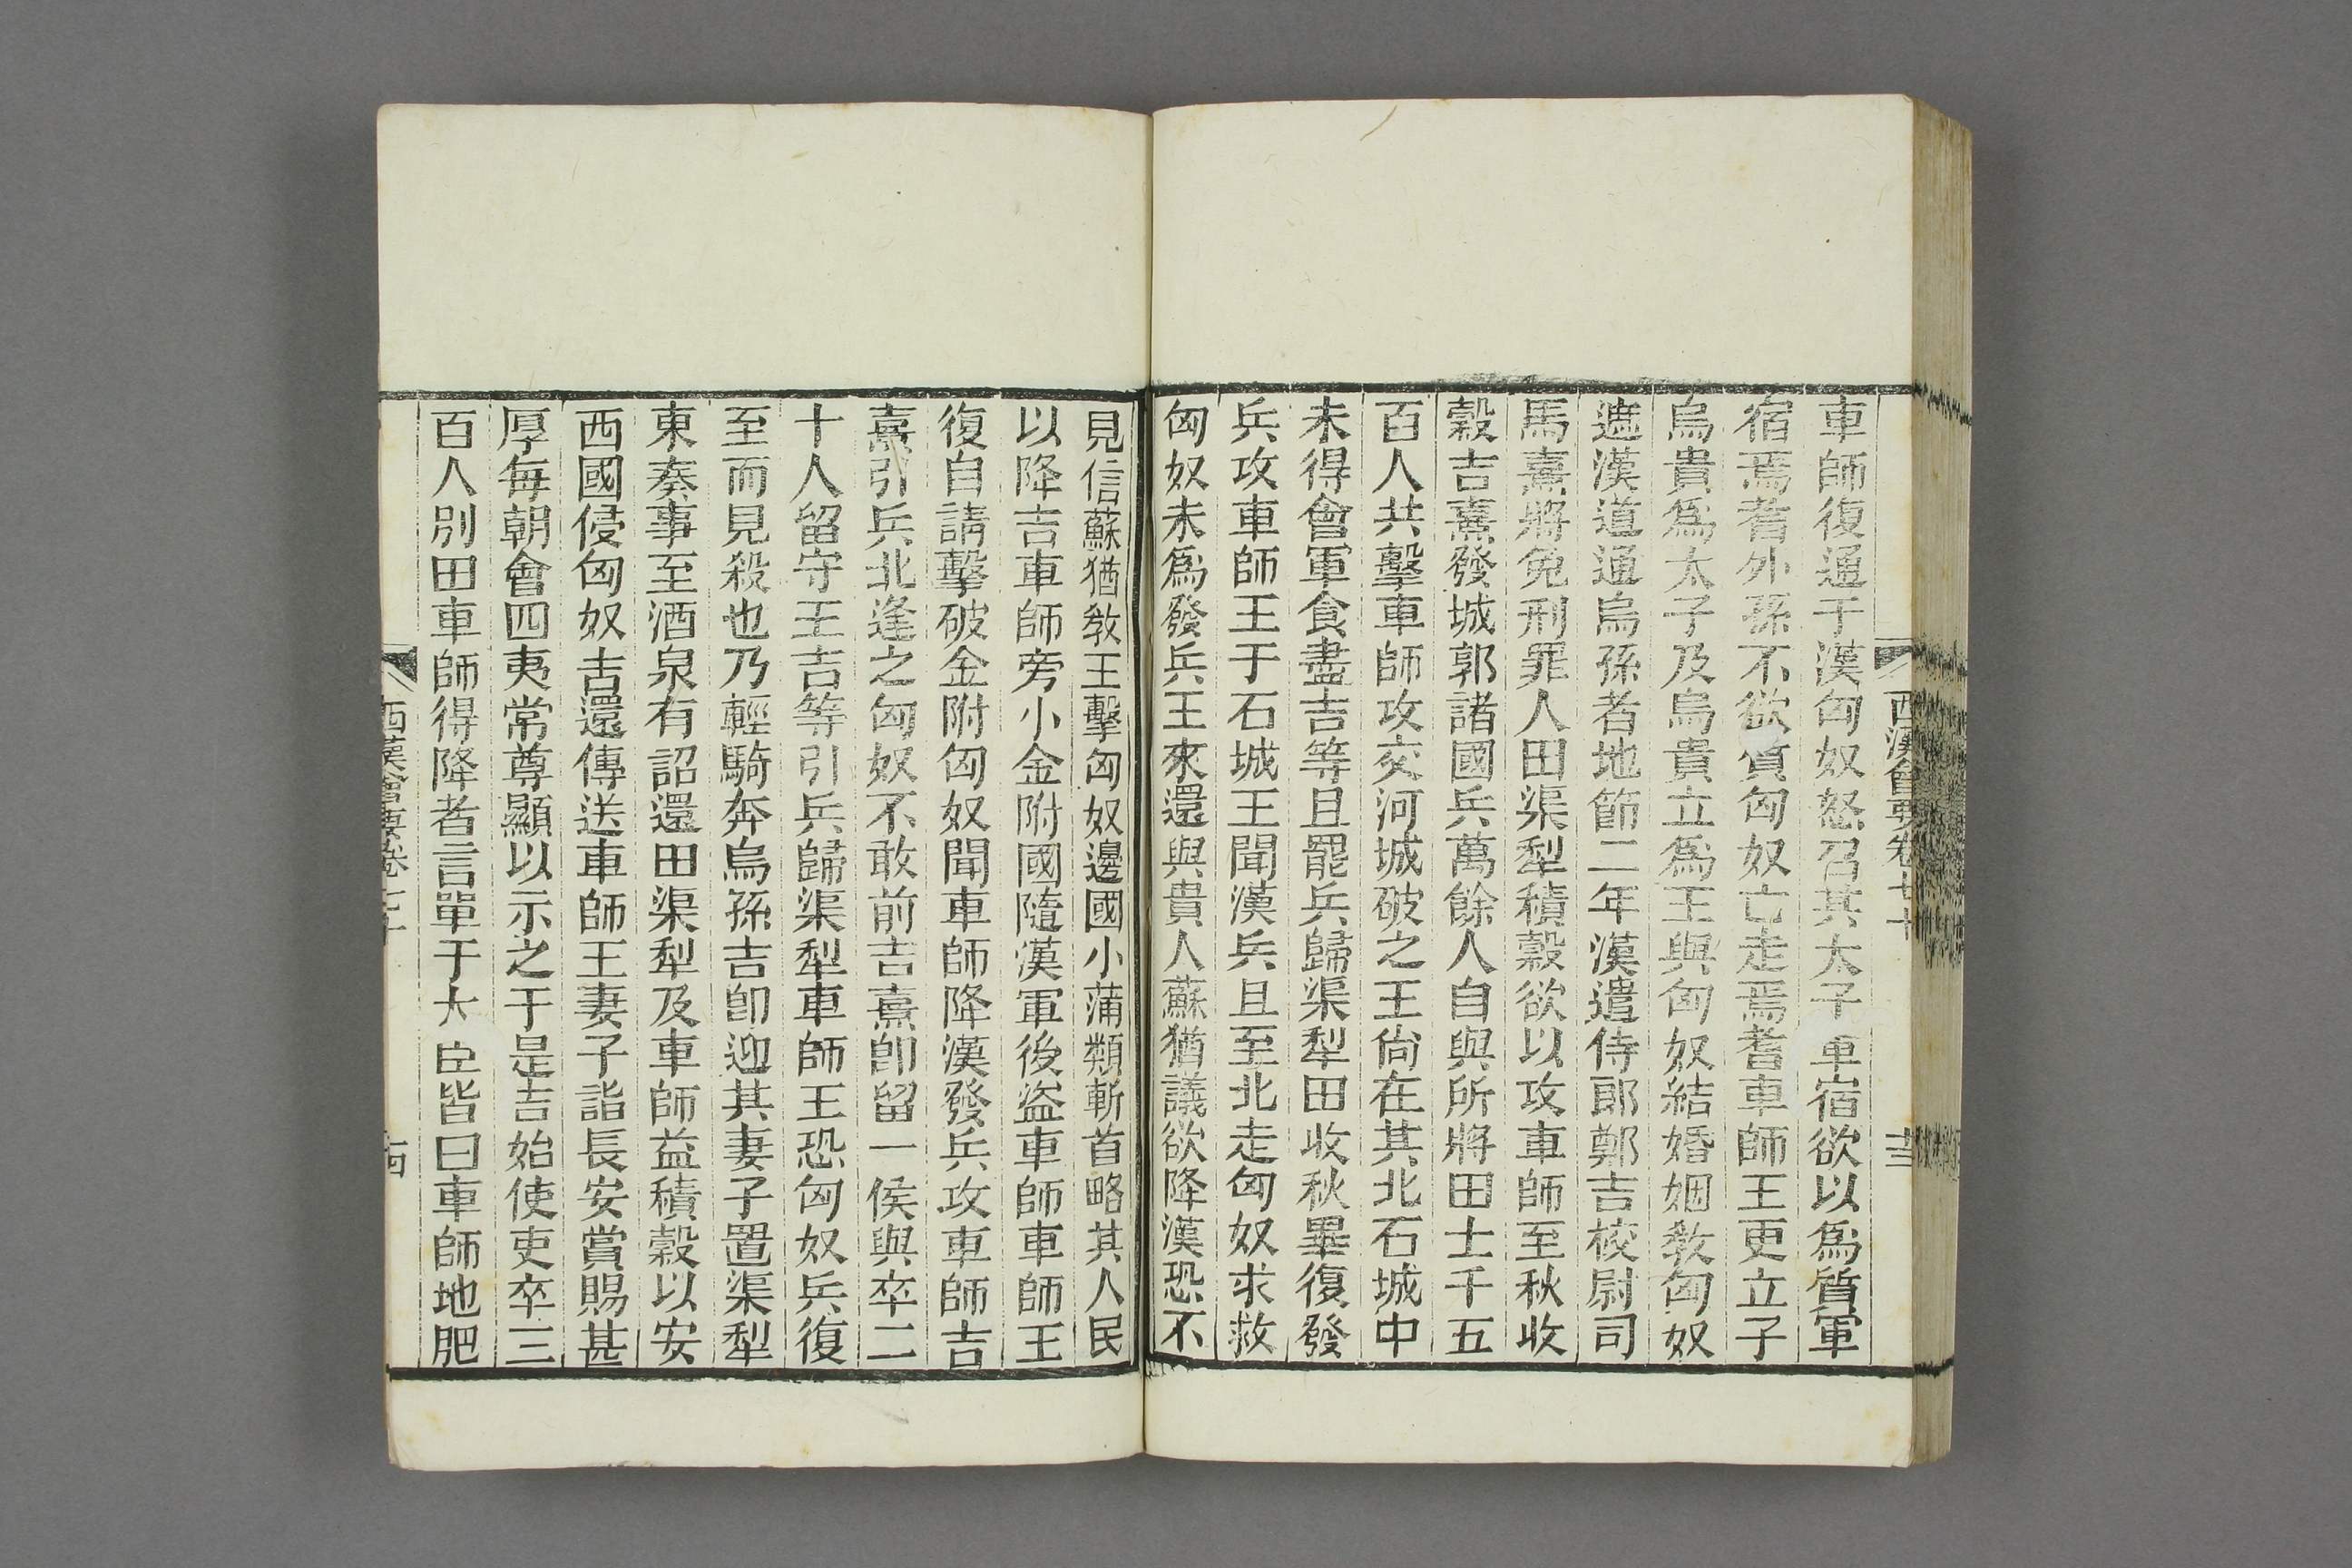 西漢會要卷七十
車師復通于漢匈奴怒召其太子軍宿欲以爲質軍
宿焉耆外孫不欲質匈奴亡走焉耆車師王更立子
烏貴爲太子及烏貴立爲王與匈奴結婚姻敎匈奴
遮漢道通烏孫者地節二年漢遣侍郎鄭吉校尉司
馬憙將免刑罪人田渠犁積穀欲以攻車師至秋收
穀吉憙發城郭諸國兵萬餘人自與所將田士千五
百人共擊車師攻交河城破之王尙在其北石城中
未得會軍食盡吉等且罷兵歸渠犁田收秋畢復發
兵攻車師王于石城王聞漢兵且至北走匈奴求救
匈奴未爲發兵王來還與貴人蘇猶議欲降漢恐不
見信蘇猶敎王擊匈奴邊國小蒲類斬首略其人民
以降吉車師旁小金附國隨漢軍後盜車師車師王
復自請擊破金附匈奴聞車師降漢發兵攻車師吉
憙引兵北逢之匈奴不敢前吉憙卽留一侯與卒二
十人留守王吉等引兵歸渠犁車師王恐匈奴兵復
至而見殺也乃輕騎奔烏孫吉卽迎其妻子置渠犁
東奏事至酒泉有詔還田渠犁及車師益積穀以安
西國侵匈奴吉還傳送車師王妻子詣長安賞賜甚
厚每朝會四夷常尊顯以示之于是吉始使吏卒三
百人別田車師得降者言單于大臣皆曰車師地肥
西漢會要卷七十